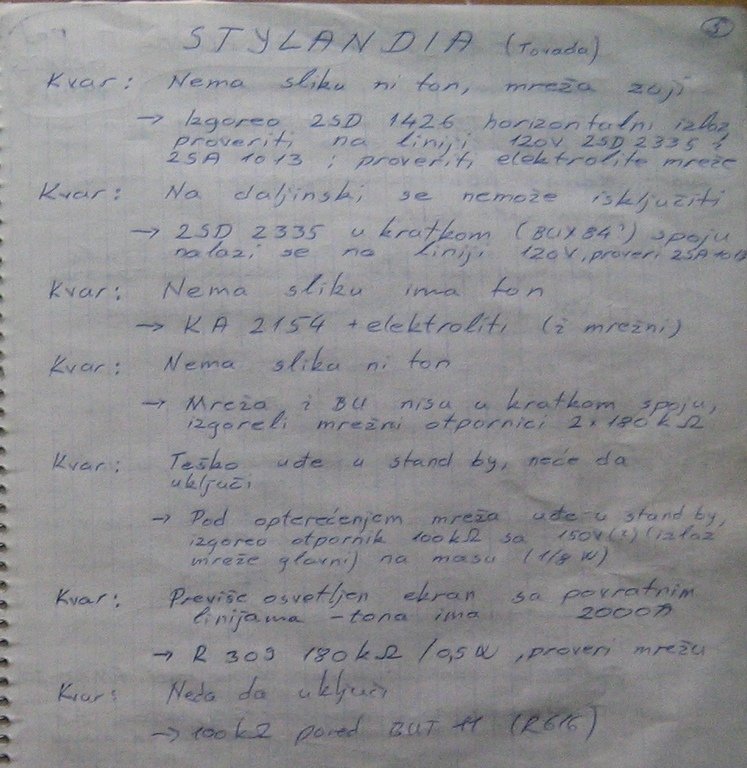 5
STYLANDIA (Tovada)
Kvar: Nema sliku ni ton, mreža zuji
→ Izgoreo 2SD 1426 horizontalni izlaz
proveriti na liniji 120V 2SD 2335 i
2SA 1013 ; proveriti elektrolite mreže
Kvar: Na daljinski se nemože isključiti
→ 2SD 2335 u kratkom (BUX84') spoju
nalazi se na liniji 120V, proveri 2SA 1013
Kvar: Nema sliku ima ton
→ KA 2154 + elektroliti (i mrežni)
Kvar: Nema sliku ni ton
→ Mreža i BU nisu u kratkom spoju,
izgoreli mrežni otpornici 2x180kΩ
Kvar: Teško uđe u stand by, neće da
uključi
→ Pod opterećenjem mreža uđe u stand by,
izgoreo otpornik 100kΩ sa 150V(?) (izlaz
mreže glavni) na masu (1/8 W)
Kvar: Previše osvetljen ekran sa povratnim
linijama - tona ima 2000
→ R 309 180kΩ /0,5W, proveri mrežu
Kvar: Neća da uključi
→ 100kΩ pored BUT 11 (R616)